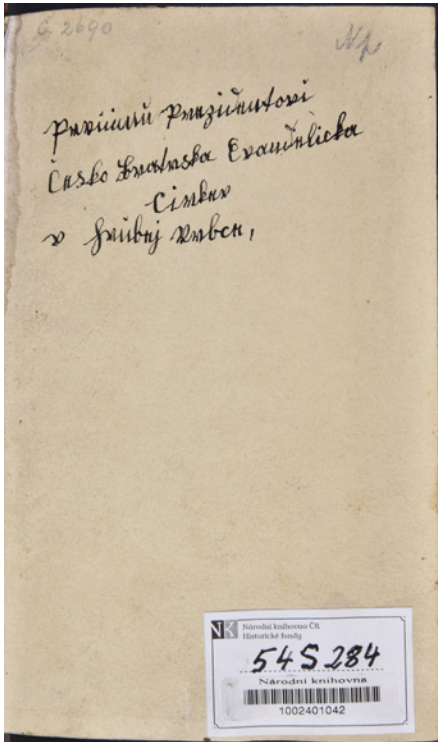 C 2690
Prvnimu Prezidentovi
Česko Bratrska Evandělicka
Cirkev
v Hrubej Vrbce,
NK Národní knihovna ČR
Historické fondy
54 S 284
Národní knihovna
1002401042